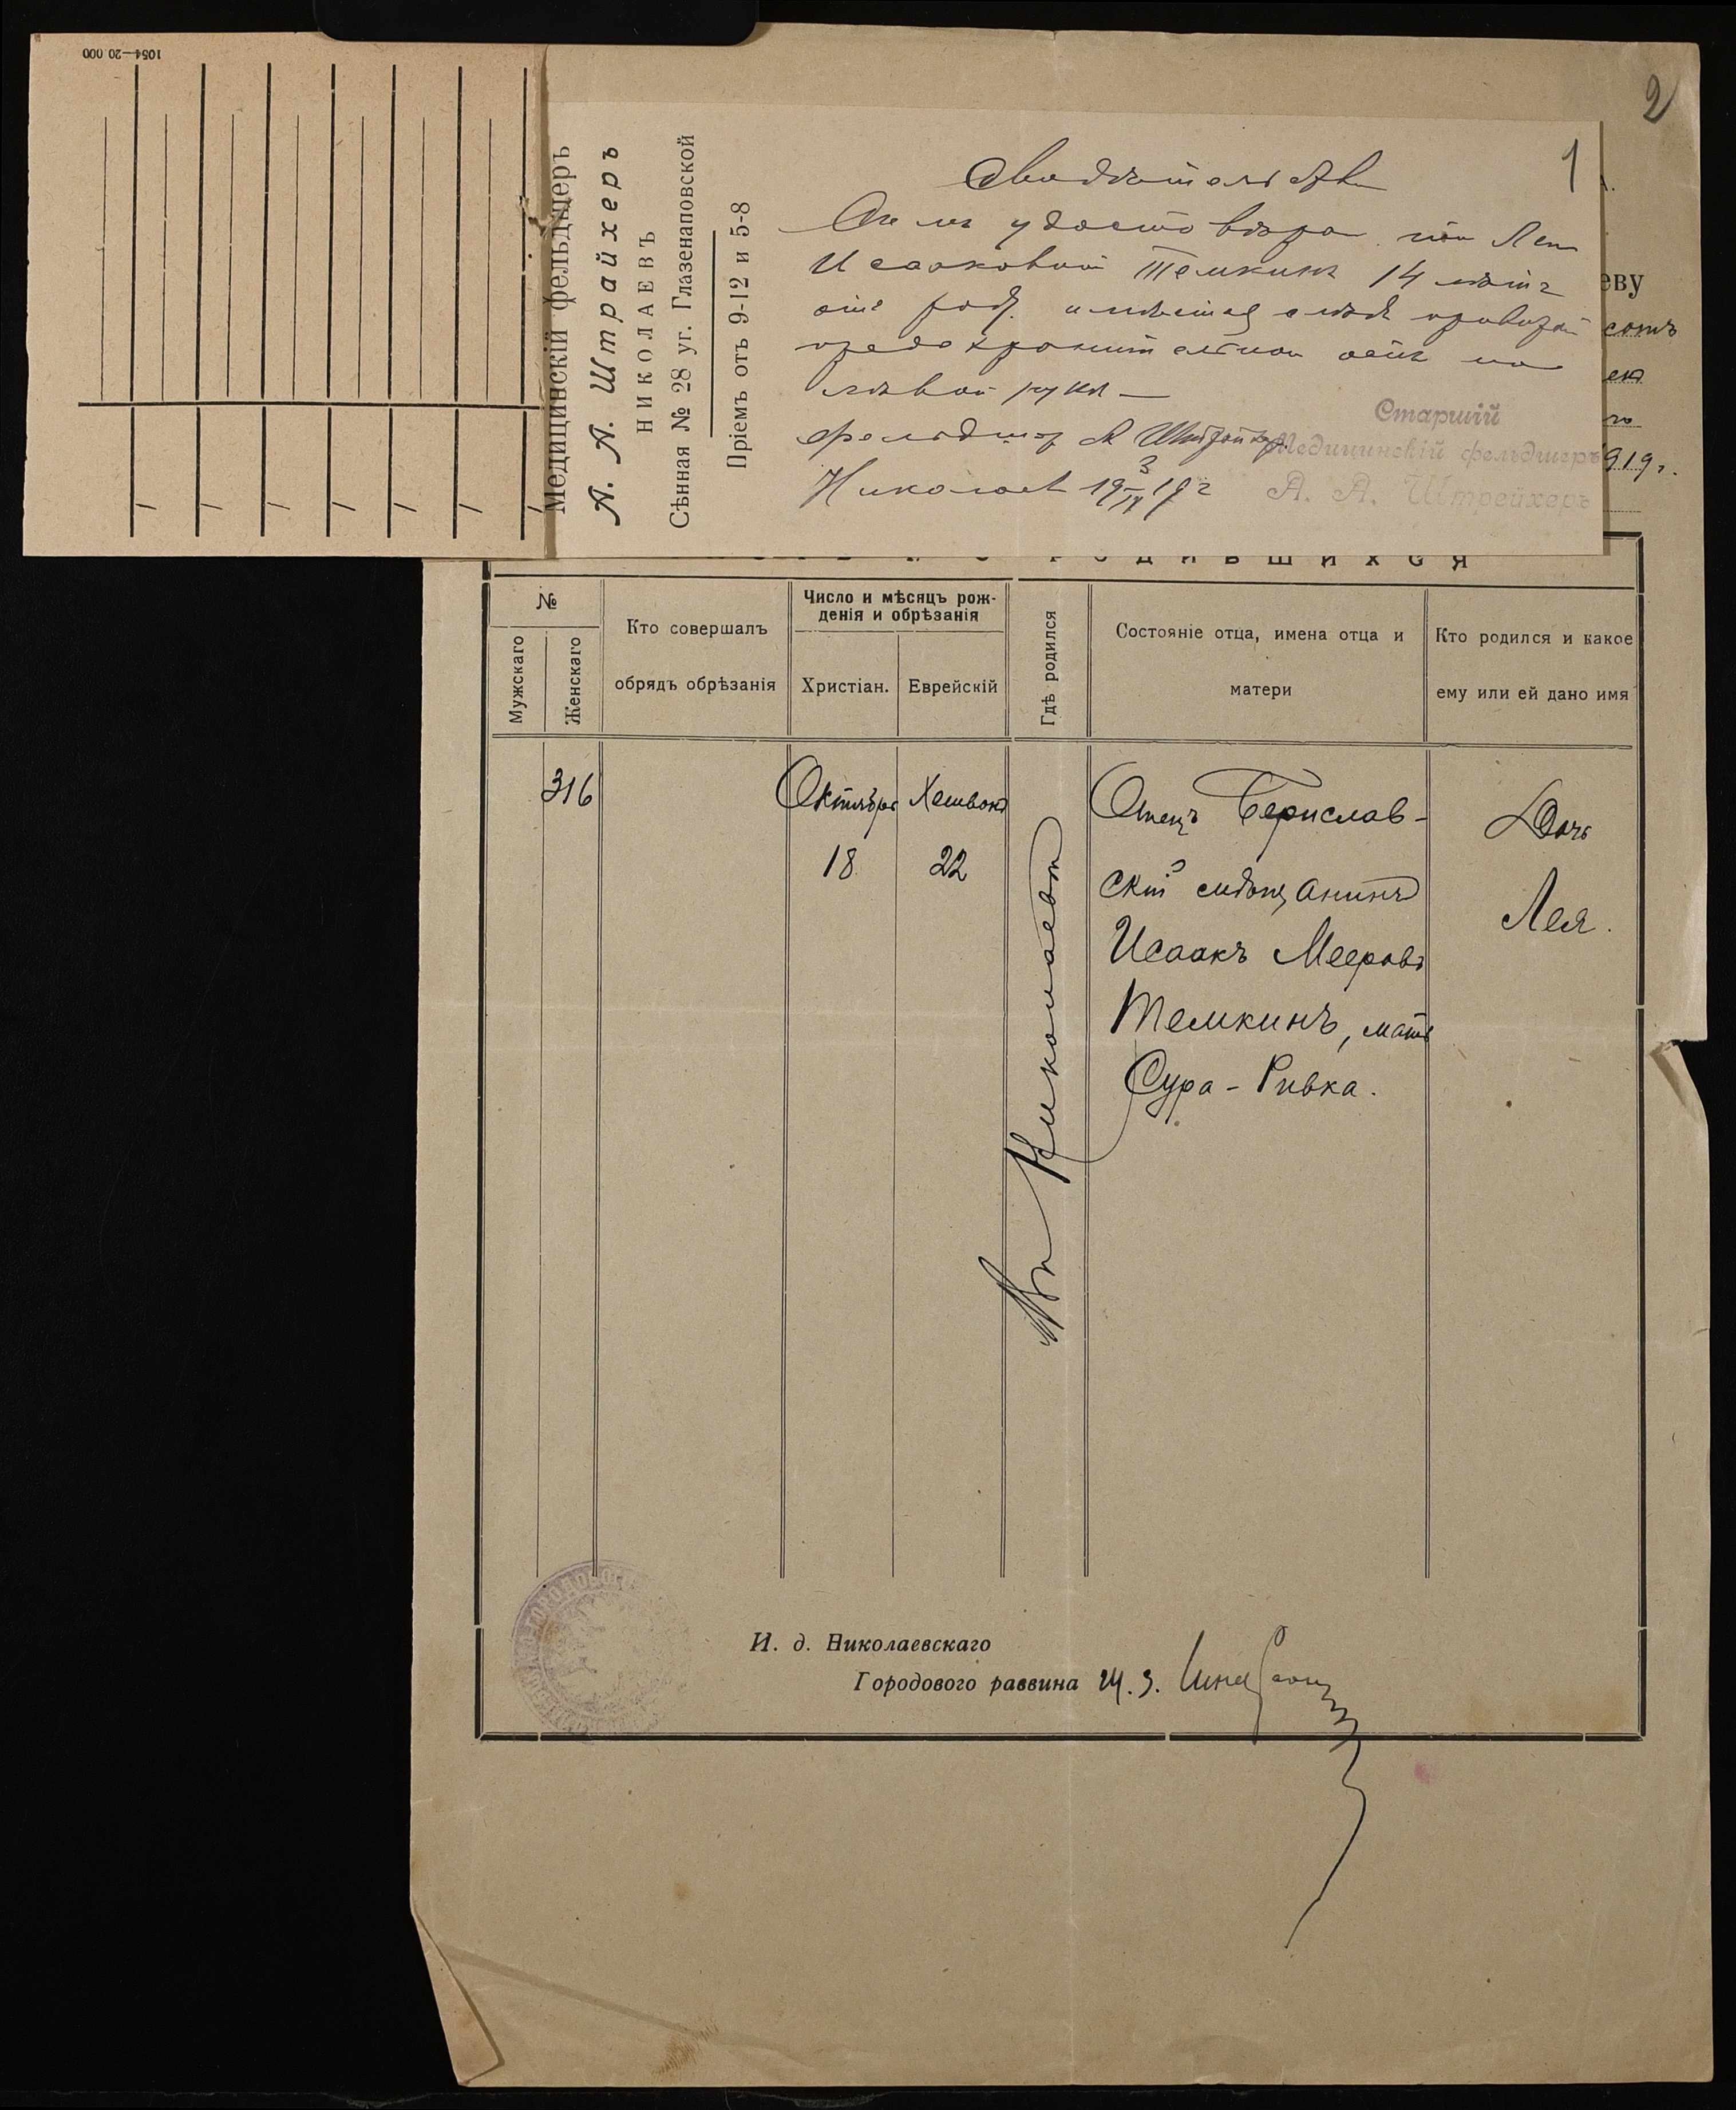 1054—20.000
2
1
Медицинскій фельдшеръ
А. А. Штрайхеръ
НИКОЛАЕВЪ
Сѣнная № 28 уг. Глазенаповской
Пріемъ отъ 9-12 и 5-8
Свидѣтельство
Симъ удостовѣряю что Лея
Исааковна Темкинъ 14 лѣтъ
отъ род. имѣетъ слѣд
предохранительной оспы на
лѣвой рукѣ —
фельдшер А Штрайхер
Николаев 19 3/IX 19 г
Старшій
Медицинскій фельдшеръ
А. А. Штрейхеръ
еву
сотъ
919 г.
РОДИВШИХСЯ
№
Мужскаго
Женскаго
Кто совершалъ
обрядъ обрѣзанія
Число и мѣсяцъ рож-
денія и обрѣзанія
Христіан.
Еврейскій
Гдѣ родился
Состояніе отца, имена отца и
матери
Кто родился и какое
ему или ей дано имя
316
Октября
18
Хешвона
22
Въ Николаевѣ
Отецъ Берислав-
скій мѣщанинъ
Исаакъ Мееровъ
Темкинъ, мать
Сура-Ривка.
Дочь
Лея.
И. д. Николаевскаго
Городового раввина Ш. З.